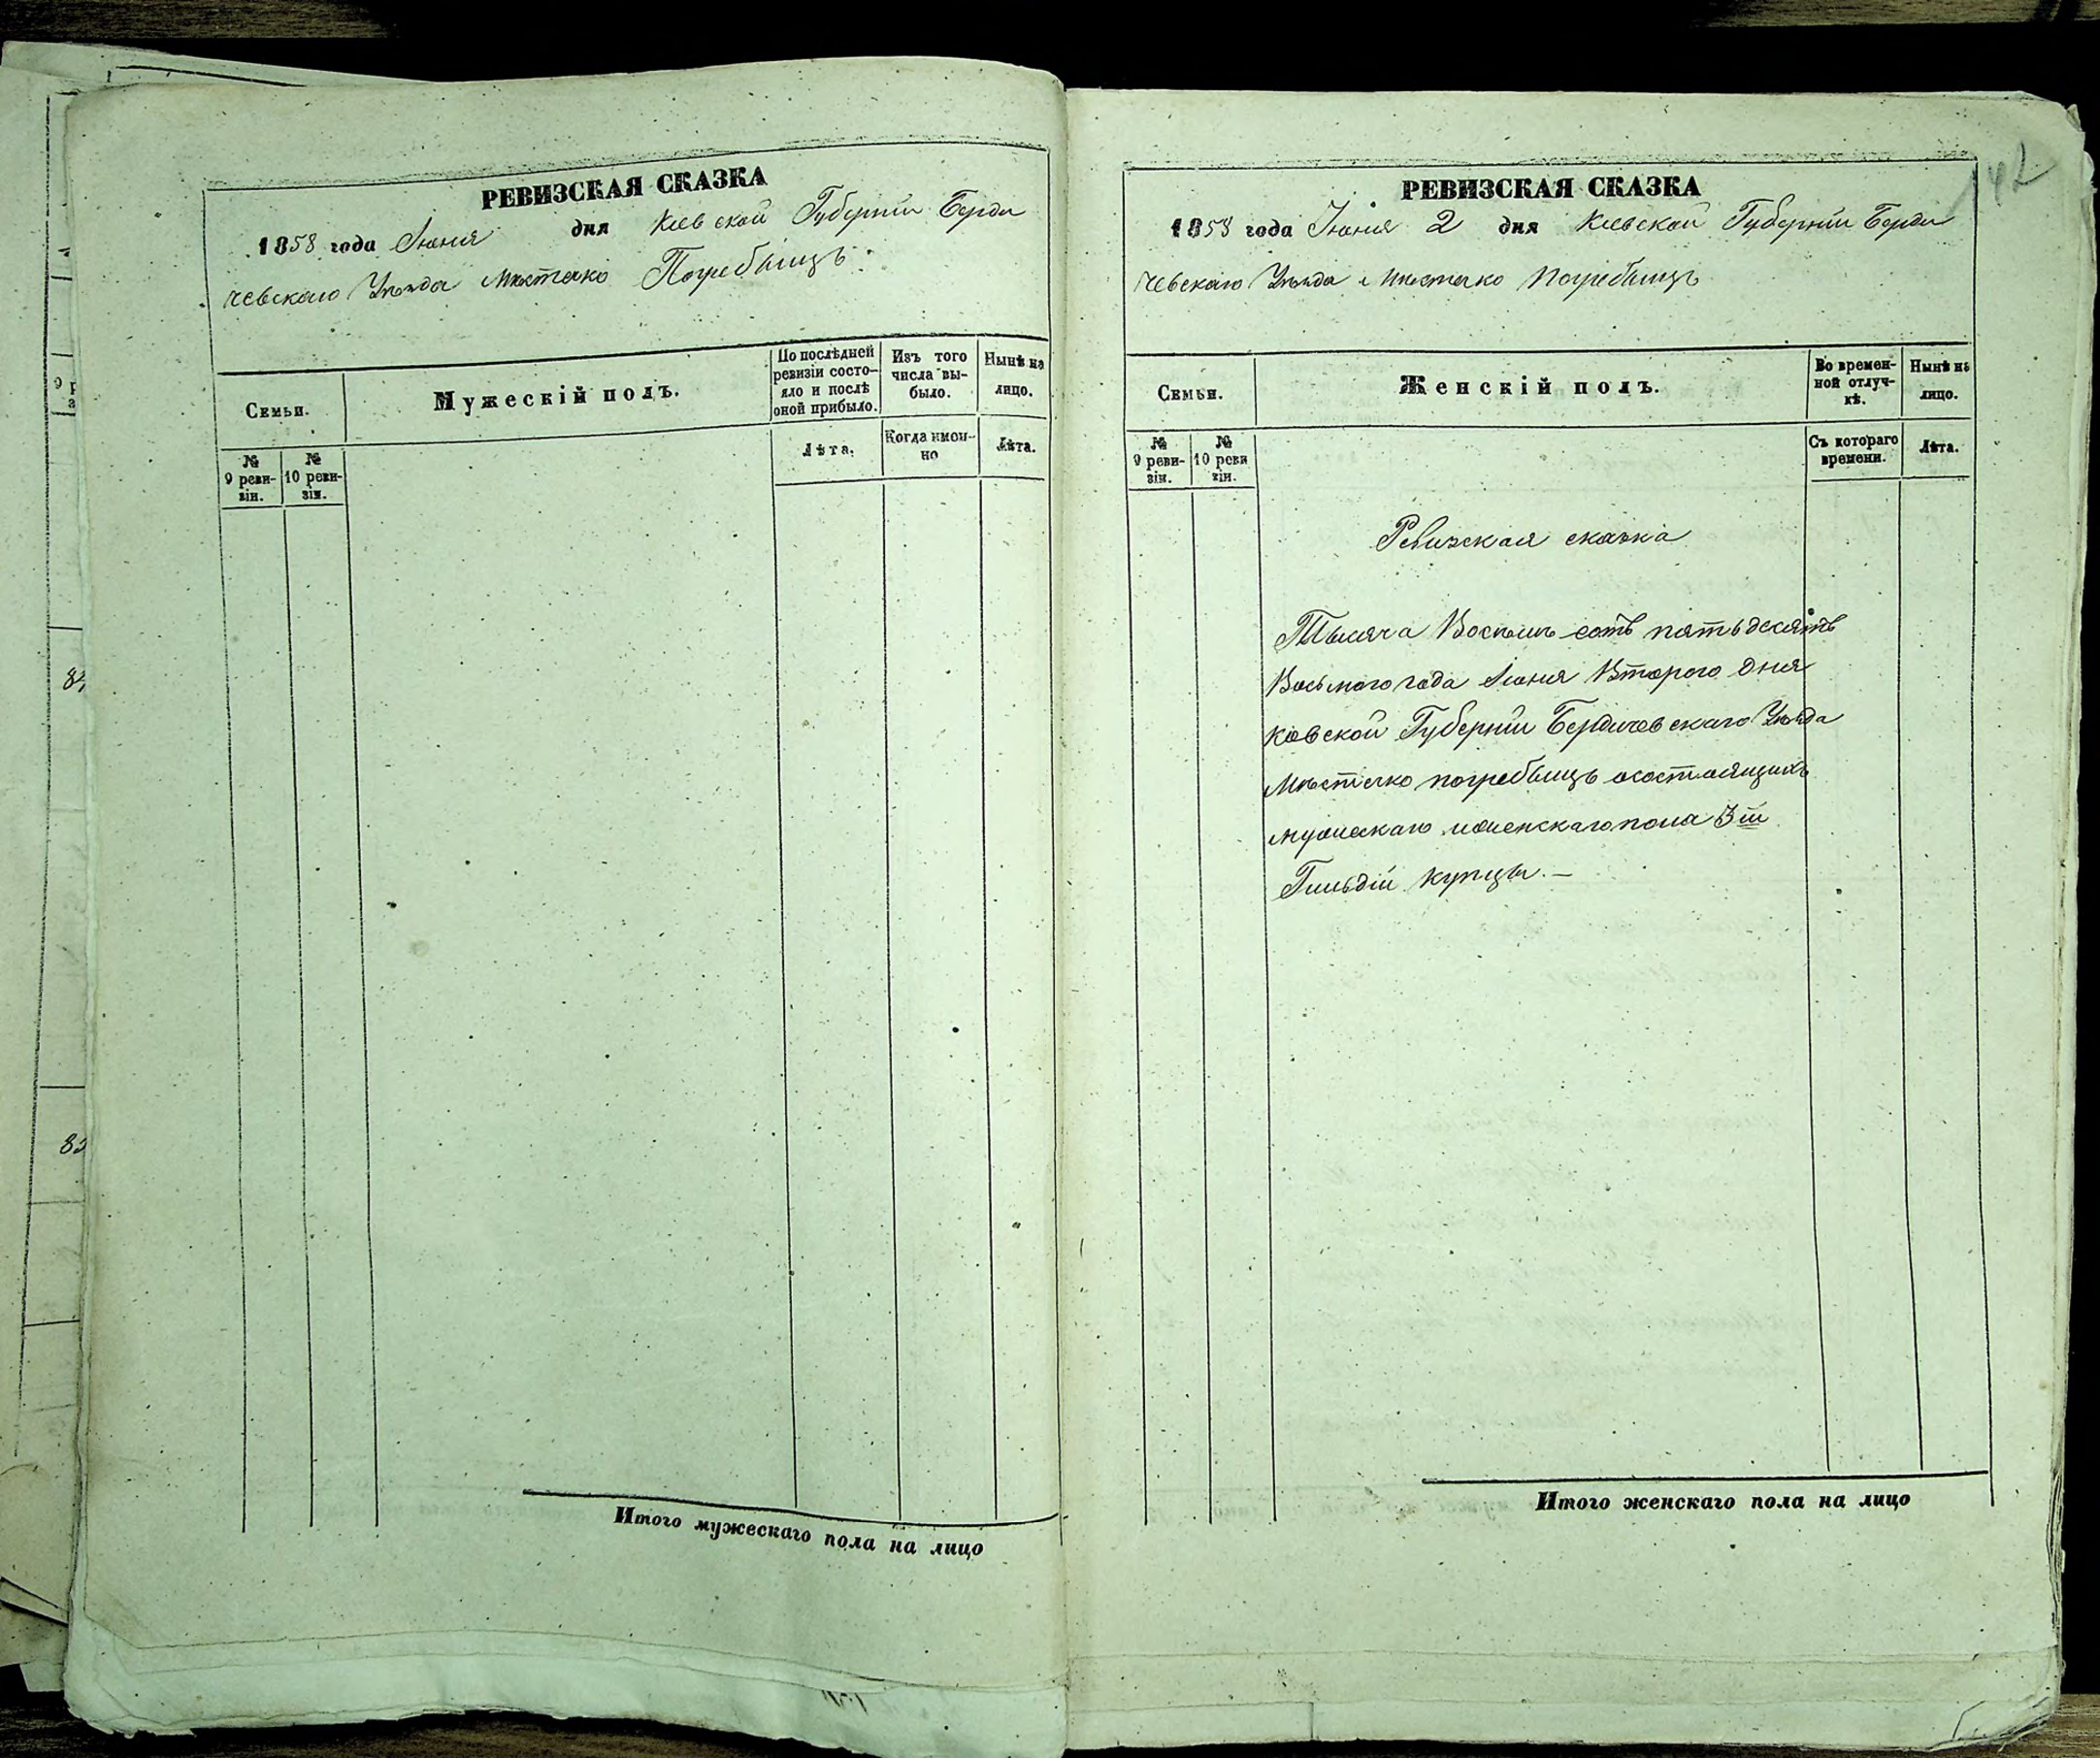 РЕВИЗСКАЯ СКАЗКА
1858 года Іюня дня Кіевской Губерніи Берди
чевскаго Уѣзда Мѣстечко Погребыщъ
Семьи.
Мужескій полъ.
По послѣдней ревизіи состо-
яло и послѣ
оной прибыло.
Изъ того
числа вы-
было.
Нынѣ на
лицо.
№
9 реви-
зіи.
№
10 реви-
зіи.
Лѣта.
Когда имен-
но
Лѣта.
Итого мужескаго пола на лицо
84
85
РЕВИЗСКАЯ СКАЗКА
1858 года Іюня 2 дня Кіевской Губерніи Берди
чевскаго Уѣзда Мѣстечко Погребыщъ
Семьи.
Женскій полъ.
Во времен-
ной отлуч-
кѣ.
Нынѣ на
лицо.
№
9 реви-
зіи.
№
10 реви
зіи.
Съ котораго
времени.
Лѣта.
Ревизская сказка
Тысяча Восемь сотъ пятьдесятъ
Восьмого года Іюня Второго дня
Кіевской Губерніи Бердичевскаго Уѣзда
Мѣстечко погребыщъ осостоящихъ
мужескаго иженскаго пола 3й
Гильдіи купцы. —
Итого женскаго пола на лицо